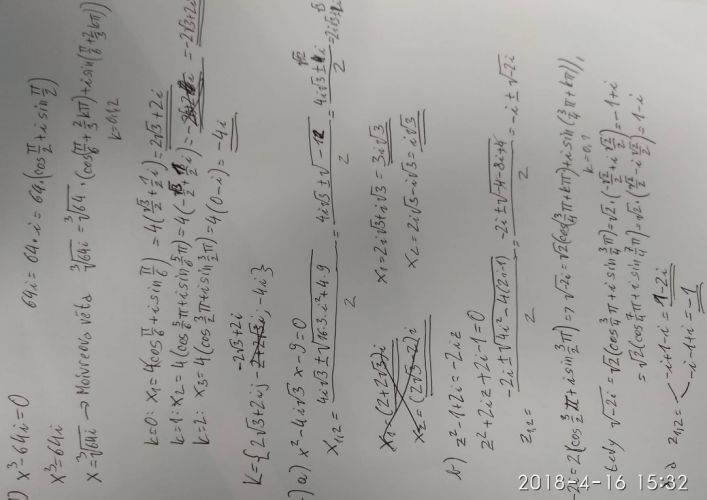 1) x³-64i=0
64i = 64·i = 64·(cos π/2 + i sin π/2)
x³=64i
x=∛64i → Moivreova věta ∛64i = ∛64 · (cos(π/6+2/3kπ)+i sin(π/6+2/3kπ))
k=0,1,2
k=0: x₁=4(cos π/6+i sin π/6)=4(√3/2+1/2i)=2√3+2i
k=1: x₂=4(cos 5/6π+i sin 5/6π)=4(-√3/2+1/2i)= =-2√3+2i
k=2: x₃=4(cos 3/2π+i sin 3/2π)=4(0-i)=-4i
-2√3+2i
K={2√3+2i; ; -4i}
a) x²-4i√3 x-9=0
x₁,₂= (4i√3±√(16·3·i²+4·9))/2 = (4i√3±√-12)/2 = (4i√3± i)/2 =2i√3±
x₁=2i√3+i√3=3i√3
x₂=2i√3-i√3=i√3
b) z²-1+2i=-2iz
z²+2iz+2i-1=0
z₁,₂= (-2i±√(4i²-4(2i-1)))/2 = (-2i±√(-4-8i+4))/2 =-i±√-2i
-2i=2(cos 3/2π+i sin 3/2π)=> √-2i=√2(cos(3/4π+kπ)+i sin(3/4π+kπ)),
k=0,1
tedy √-2i=√2(cos 3/4π+i sin 3/4π)=√2·(-√2/2+i√2/2)=-1+i
=√2(cos 7/4π+i sin 7/4π)=√2·(√2/2-i√2/2)=1-i
z₁,₂= -i+1-i=1-2i
-i-1+i=-1
2018-4-16 15:32